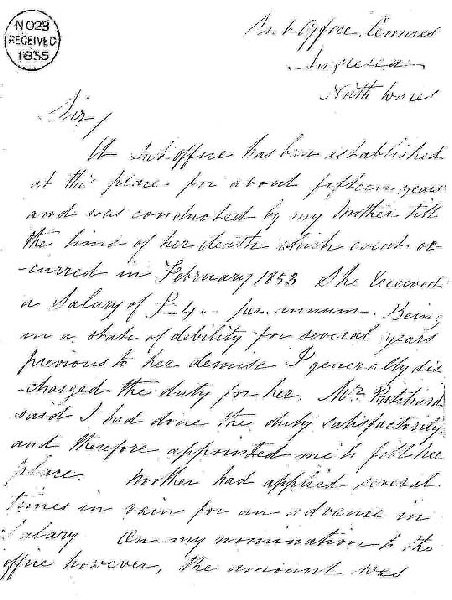 NO 29
RECEIVED
1855
Sub Office, Cemaes
Anglesea
North Wales
Sir/
A Sub office has been established
at this place for about fifteen years
and was conducted by my Mother till
the time of her death which event oc-
curred in February 1853 She received
a Salary of £4.. per annum. Being
in a state of debility for several years
previous to her demise I generally dis-
charged the duty for her. Mr.
said I had done the duty satisfactorily
and therefore appointed me to fill the
place. Mother had applied several
times in vain for an advance in
Salary On my nomination to the
office however, the amount was